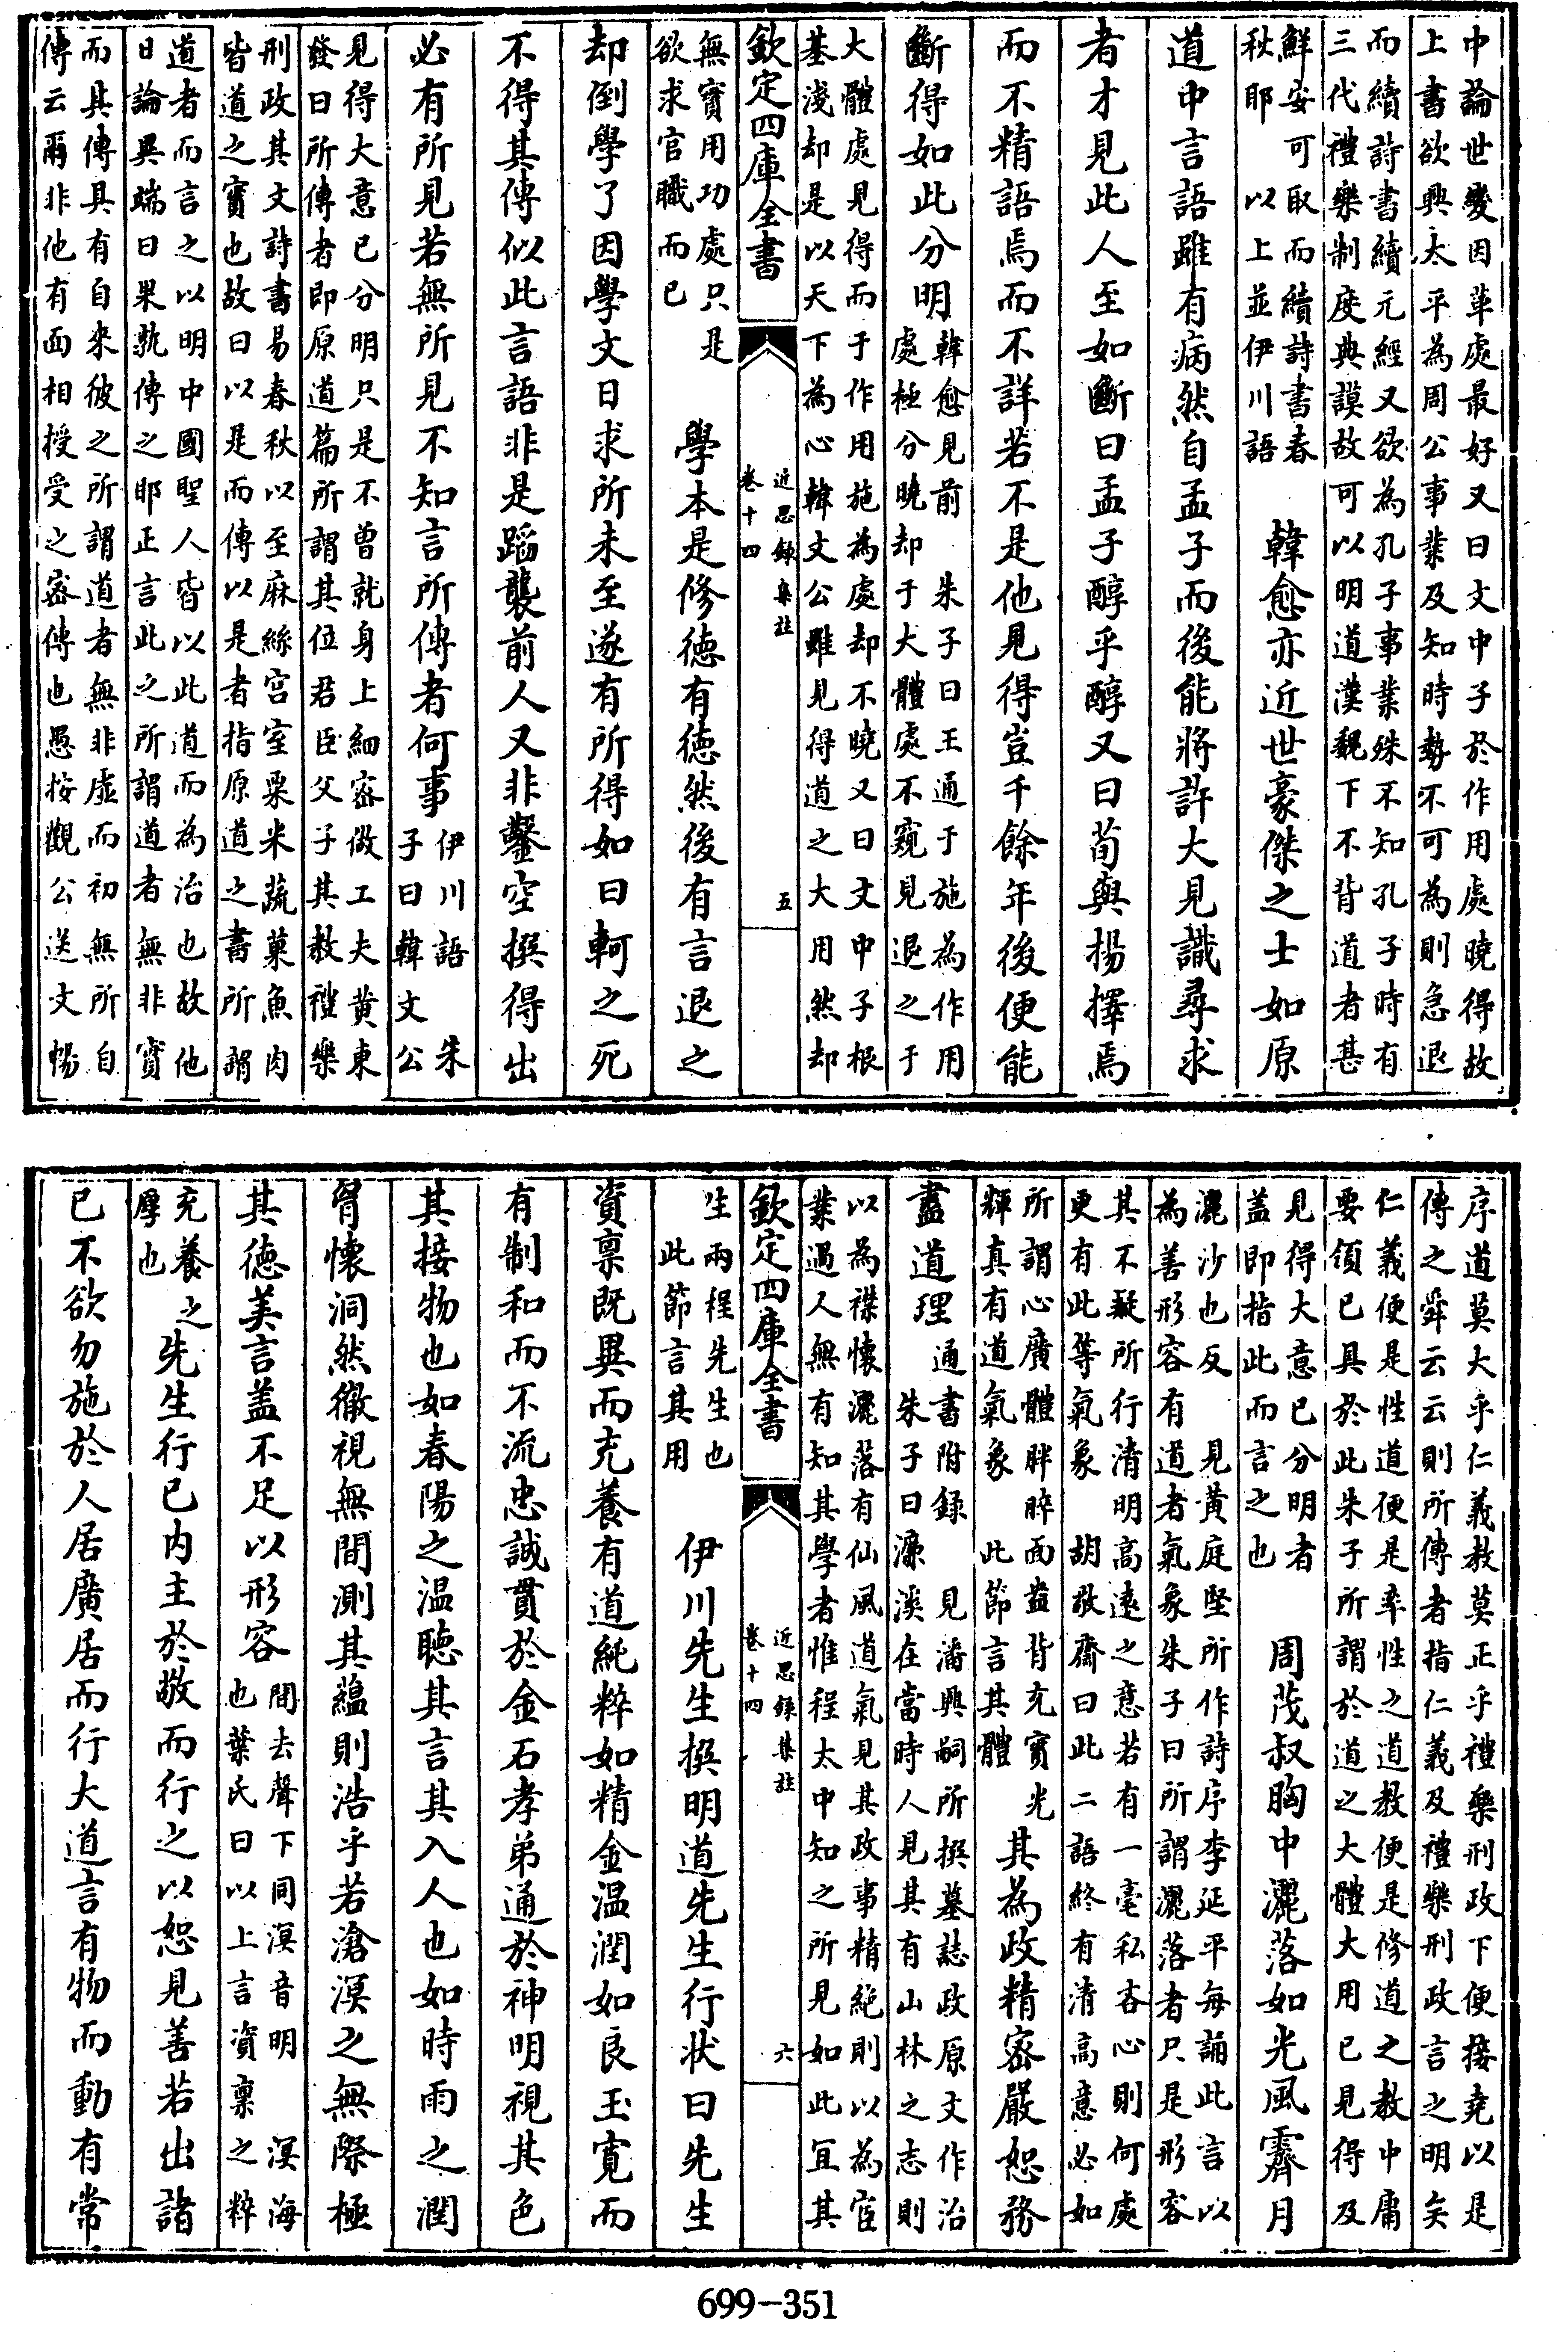 中論世變因革處最好又曰文中子於作用處曉得故
上書欲興太平為周公事業及知時勢不可為則急退
而續詩書續元經又欲為孔子事業殊不知孔子時有
三代禮樂制度典謨故可以明道漢魏下不背道者甚
鮮安可取而續詩書春
秋耶 以上並伊川語
韓愈亦近世豪傑之士如原
道中言語雖有病然自孟子而後能將許大見識尋求
者才見此人至如斷曰孟子醇乎醇又曰荀與揚擇焉
而不精語焉而不詳若不是他見得豈千餘年後便能
斷得如此分明
韓愈見前 朱子曰王通于施為作用
處極分曉却于大體處不窺見退之于
大體處見得而于作用施為處却不曉又曰文中子根
基淺却是以天下為心韓文公雖見得道之大用然却
欽定四庫全書
近思錄集註
卷十四
五
無實用功處只是
欲求官職而已
學本是修德有德然後有言退之
却倒學了因學文日求所未至遂有所得如曰軻之死
不得其傳似此言語非是蹈襲前人又非鑿空撰得出
必有所見若無所見不知言所傳者何事
伊川語 朱
子曰韓文公
見得大意已分明只是不曾就身上細密做工夫黃東
發曰所傳者即原道篇所謂其位君臣父子其教禮樂
刑政其文詩書易春秋以至麻絲宮室粟米蔬菓魚肉
皆道之實也故曰以是而傳以是者指原道之書所謂
道者而言之以明中國聖人皆以此道而為治也故他
日論異端曰果孰傳之耶正言此之所謂道者無非實
而其傳具有自來彼之所謂道者無非虛而初無所自
傳云爾非他有面相授受之密傳也愚按觀公送文暢
序道莫大乎仁義教莫正乎禮樂刑政下便接堯以是
傳之舜云云則所傳者指仁義及禮樂刑政言之明矣
仁義便是性道便是率性之道教便是修道之教中庸
要領已具於此朱子所謂於道之大體大用已見得及
見得大意已分明者
蓋即指此而言之也
周茂叔胸中灑落如光風霽月
灑沙也反 見黃庭堅所作詩序李延平每誦此言以
為善形容有道者氣象朱子曰所謂灑落者只是形容
其不疑所行清明高遠之意若有一毫私吝心則何處
更有此等氣象 胡敬齋曰此二語終有清高意必如
所謂心廣體胖睟面盎背充實光
輝真有道氣象 此節言其體
其為政精密嚴恕務
盡道理
通書附錄 見潘興嗣所撰墓誌政原文作治
朱子曰濂溪在當時人見其有山林之志則
以為襟懷灑落有仙風道氣見其政事精絶則以為宦
業過人無有知其學者惟程太中知之所見如此宜其
欽定四庫全書
近思錄集註
卷十四
六
生兩程先生也
此節言其用
伊川先生撰明道先生行狀曰先生
資稟既異而充養有道純粹如精金温潤如良玉寛而
有制和而不流忠誠貫於金石孝弟通於神明視其色
其接物也如春陽之温聽其言其入人也如時雨之潤
胷懷洞然徹視無間測其蘊則浩乎若滄溟之無際極
其德美言蓋不足以形容
間去聲下同溟音明 溟海
也葉氏曰以上言資稟之粹
充養之
厚也
先生行已内主於敬而行之以恕見善若出諸
已不欲勿施於人居廣居而行大道言有物而動有常
699-351